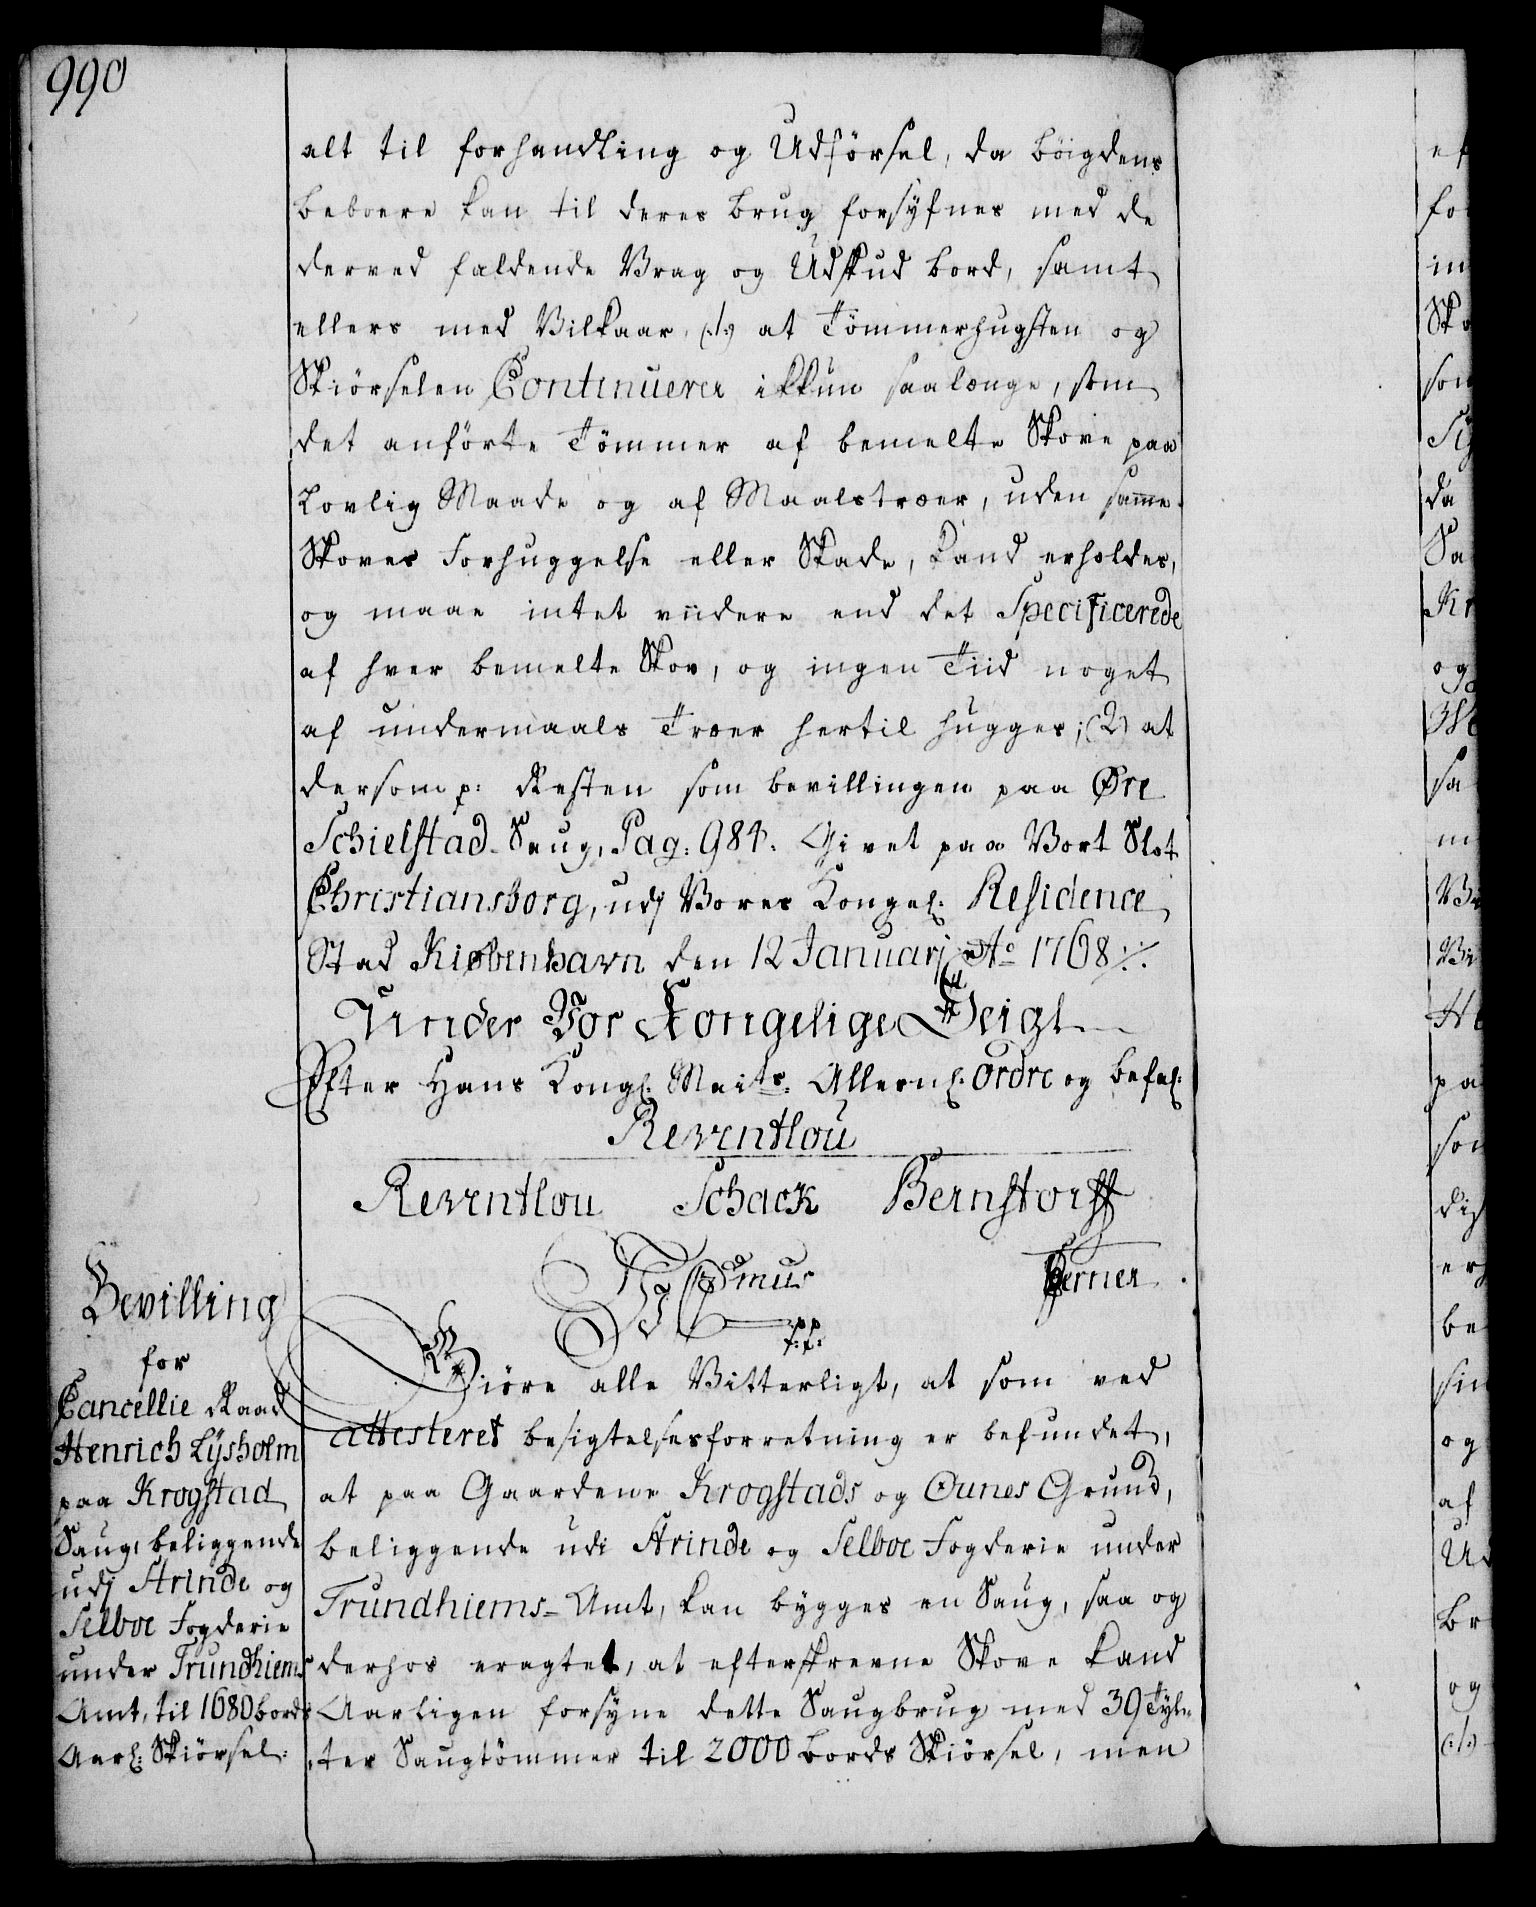 990
alt til forhandling og Udförsel, da böigdens
beboere kan til deres brug forsÿfnes med de
derved faldende Vrag og Udskud bord, samt
ellers med Vilkaar, (:1:) at Tömmerhugsten og
Skiörselen Continuerer ikkun saalænge, som
det anförte Tömmer af bemelte Skove paa
Lovlig Maade og af Maalstræer, uden samme
Skoves Forhuggelse eller Skade, kand erholdes,
og maae intet viidere end det Specificerede
af hver bemelte Skov, og ingen Tiid noget
af undermaals Træer hertil hugges; (2) at
dersom p: Resten som bevillingen paa Øre
Schielstad Saug, Pag: 984. Givet paa Vort Slot
Christiansborg, udj Vores Kongel: Residence
Stad Kiøbenhavn den 12 Januarj Ao 1768 ./.
Under Vor Kongelige Seigl
Efter Hans Kongl: Maits. Allern: Ordre og befal:
Reventlou
Reventlou Schack Bernstorff
Ferner
Bevilling
for
Cancellie Raad
Henrich Lÿsholm
paa Krogstad
Saug, beliggende
udj Strinde og
Selboe Fogderie
under Trundhiems
Amt, til 1680 bords
Aarl: Skiörsel:
Giöre alle Vitterligt, at som ved
attesteret besigtelsesforretning er befundet,
at paa Gaardene Krogstads og Ounes Grund,
beliggende udi Strinde og Selboe Fogderie under
Trundhiems Amt, kan bygges en Saug, saa og
derhos eragtet, at efterskrevne Skove kand
Aarligen forsyne dette Saugbrug med 39 Tyl-
ter Saugtömmer til 2000 bords Skiörsel, men